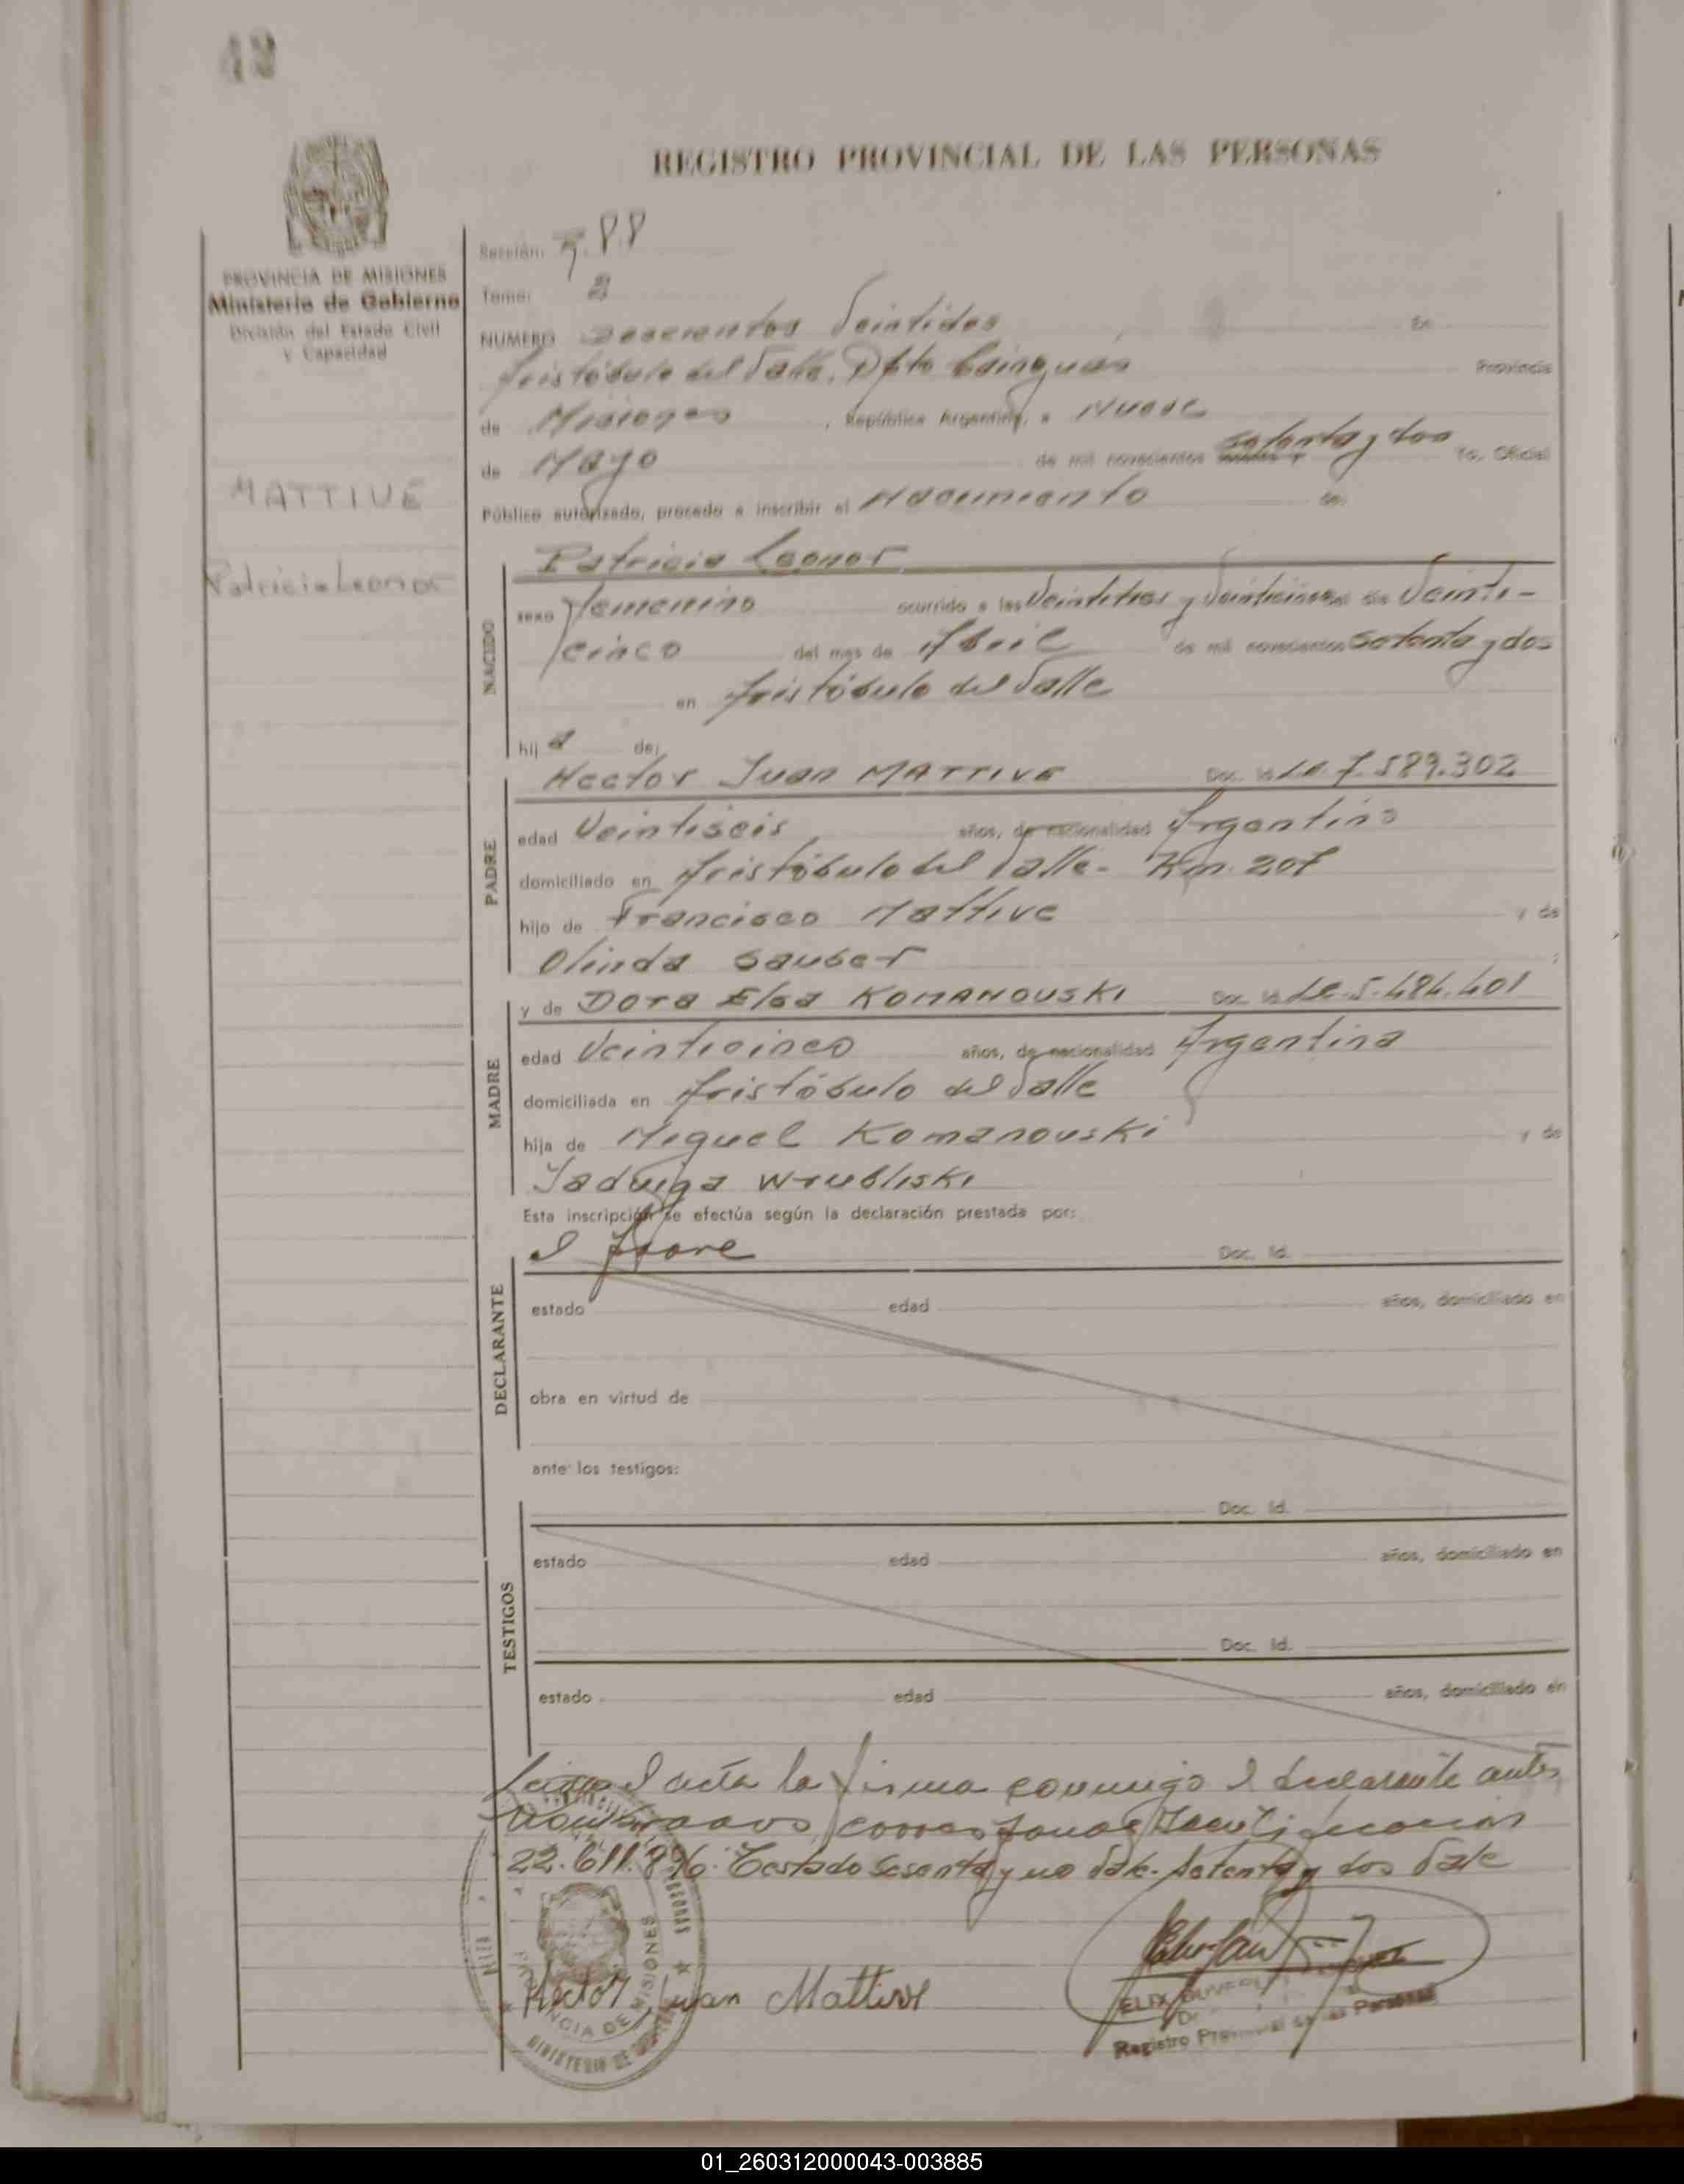 REGISTRO PROVINCIAL DE LAS PERSONAS
PROVINCIA DE MISIONES
Ministerio de Gobierno
División del Estado Civil
y Capacidad
MATTIVE
Patricia Leonor
Sección:
Tomo: 2
NUMERO Doscientos Veintidos En
Aristóbulo del Valle, Dpto Cainguas Provincia
de Misiones, República Argentina, a Nueve
de Mayo de mil novecientos setenta y dos Yo, Oficial
Público autorizado, procedo a inscribir el Nacimiento de:
NACIDO
Patricia Leonor
sexo femenino ocurrido a las Veintitres y Veinticinco de Veinti-
cinco del mes de Abril de mil novecientos Setenta y dos
en Aristóbulo del Valle
hij a de:
PADRE
Hector Juan MATTIVE Doc. Id. L.E. 7.589.302
edad Veintiseis años, de nacionalidad Argentino
domiciliado en Aristóbulo del Valle- Km. 207
hijo de Francisco Mattive y de
Olinda Sauber
MADRE
y de Dora Elsa KOMANOUSKI Doc. Id. L.C. 5.484.401
edad Veinticinco años, de nacionalidad Argentina
domiciliada en Aristóbulo del Valle
hija de Miguel Komanouski y de
Jadviga Wrubliski
Esta inscripción se efectúa según la declaración prestada por:
DECLARANTE
el Padre Doc. Id.
estado edad años, domiciliado en
obra en virtud de
ante los testigos:
TESTIGOS
Doc. Id.
estado edad años, domiciliado en
Doc. Id.
estado edad años, domiciliado en
el acta la firma conmigo el declarante antes
22.611.896. Testado sesenta y no Vale. Setenta y dos Vale
Hector Juan Mattive
Registro Provincial de las Personas
PROVINCIA DE MISIONES
MINISTERIO DE
01_260312000043-003885